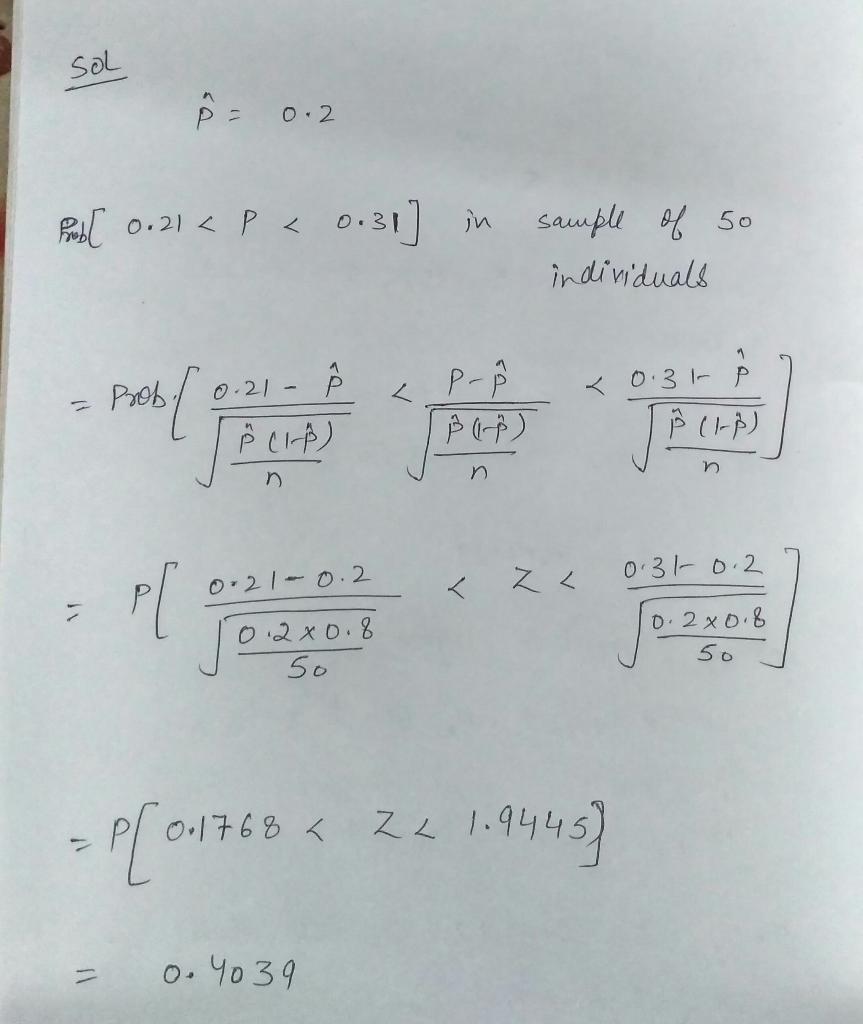 Sol
p̂ = 0.2
Prob[ 0.21 < P < 0.31 ] in sample of 50
individuals
= Prob[ (0.21 - p̂)/√(p̂(1-p̂)/n) < (P-p̂)/√(p̂(1-p̂)/n) < (0.31- p̂)/√(p̂(1-p̂)/n) ]
= P[ (0.21-0.2)/√(0.2x0.8/50) < Z < (0.31- 0.2)/√(0.2x0.8/50) ]
= P[ 0.1768 < Z < 1.9445]
= 0.4039